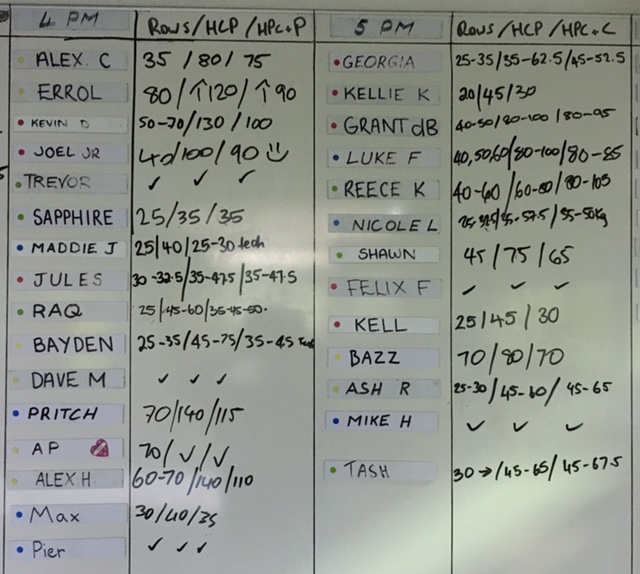 4 PM ROWS/HCP/HPC+P
ALEX. C 35 / 80 / 75
ERROL 80 / ↑120 / ↑90
KEVIN D 50-70/130 / 100
JOEL JR 40/100/90 ☺
TREVOR ✓ ✓ ✓
SAPPHIRE 25/35/35
MADDIE J 25/40/25-30 tech
JULES 30-32.5/35-47.5/35-47.5
RAQ 25/45-60/35-45-50.
BAYDEN 25-35/45-75/35-45
DAVE M ✓ ✓ ✓
PRITCH 70/140/115
AP 70/ ✓/✓
ALEX H 60-70/140/110
Max 30/40/35
Pier ✓ ✓ ✓
5 PM ROWS/HCP/HPC+C
GEORGIA 25-35/35-62.5/45-52.5
KELLIE K 20/45/30
GRANT dB 40-50/80-100/80-95
LUKE F 40,50,60/80-100/80-85
REECE K 40-60/60-80/80-105
NICOLE L /35-50kg
SHAWN 45/75/65
FELIX F ✓ ✓ ✓
KELL 25/45/30
BAZZ 70/80/70
ASH R 25-30/45-60/45-65
MIKE H ✓ ✓ ✓
TASH 30→/45-65/45-67.5